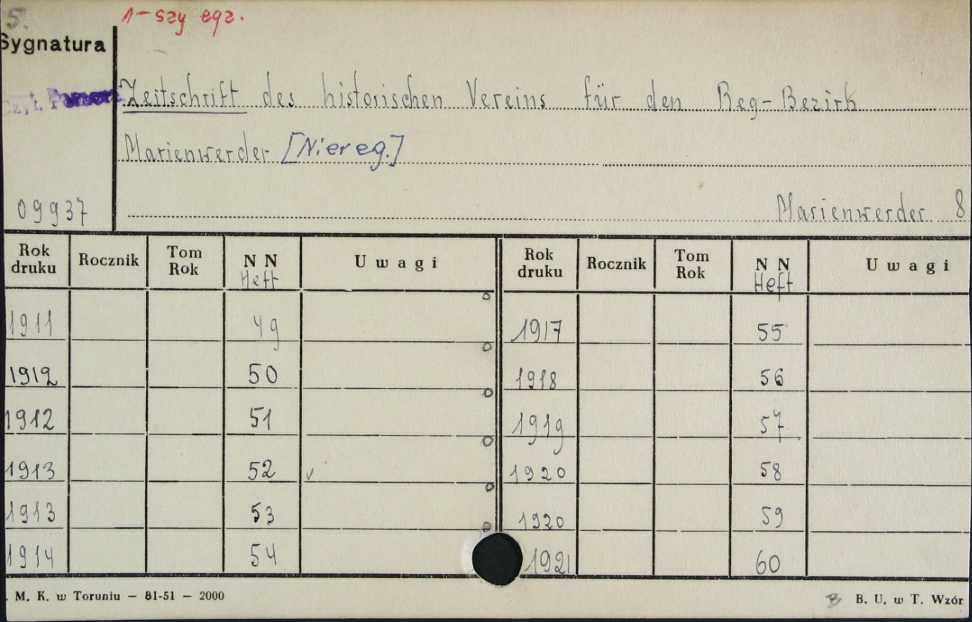 5.
1-szy egz.
Sygnatura
Zeitschrift des historischen Vereins für den Reg-Bezirk
Marienwerder [Niereg.]
09937
Marienwerder 8
Rok druku Rocznik Tom Rok NN Heft Uwagi Rok druku Rocznik Tom Rok NN Heft Uwagi
1911 49 1917 55
1912 50 1918 56
1912 51 1919 57
1913 52 v 1920 58
1913 53 1920 59
1914 54 1921 60
M. K. w Toruniu — 81-51 — 2000
B. U. w T. Wzór